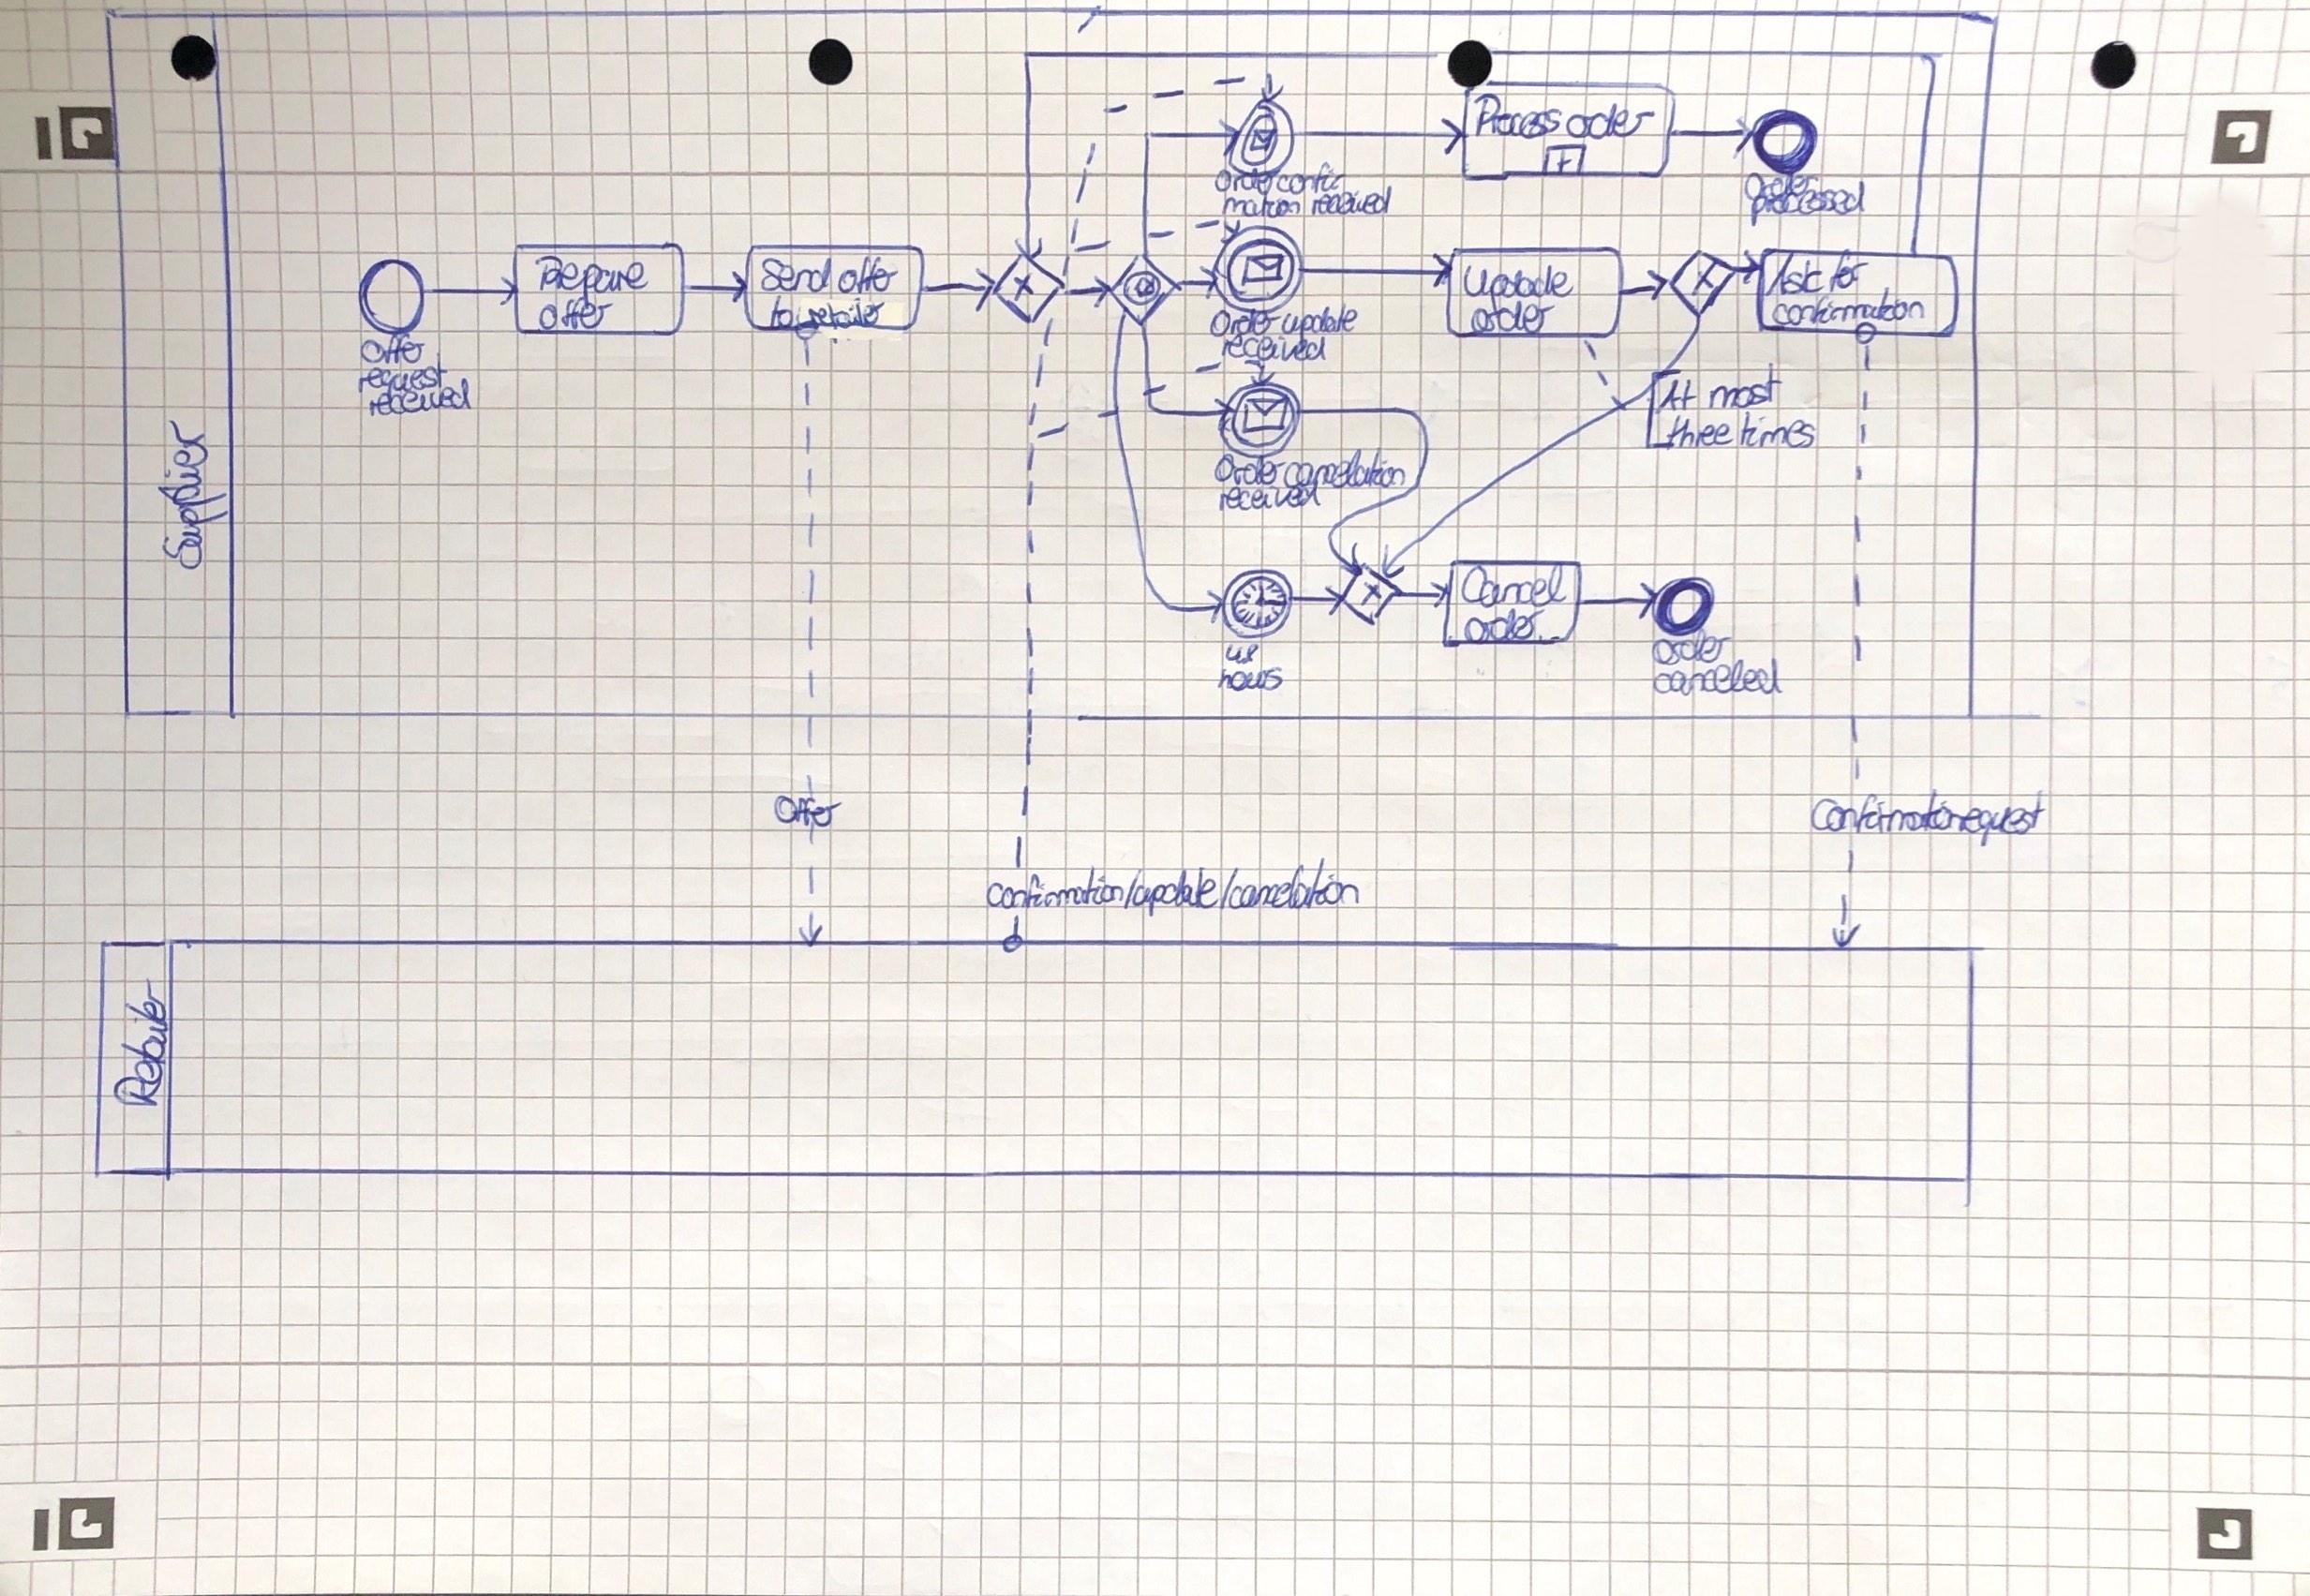 Supplier
Offer
request
received
Prepare
offer
Send offer
to retailer
Order confir
mation received
Process order
Order
processed
Order update
received
Update
order
Ask for
confirmation
At most
three times
Order cancelation
received
48
hours
Cancel
order
Order
canceled
Offer
Confirmation request
confirmation/update/cancelation
Retailer